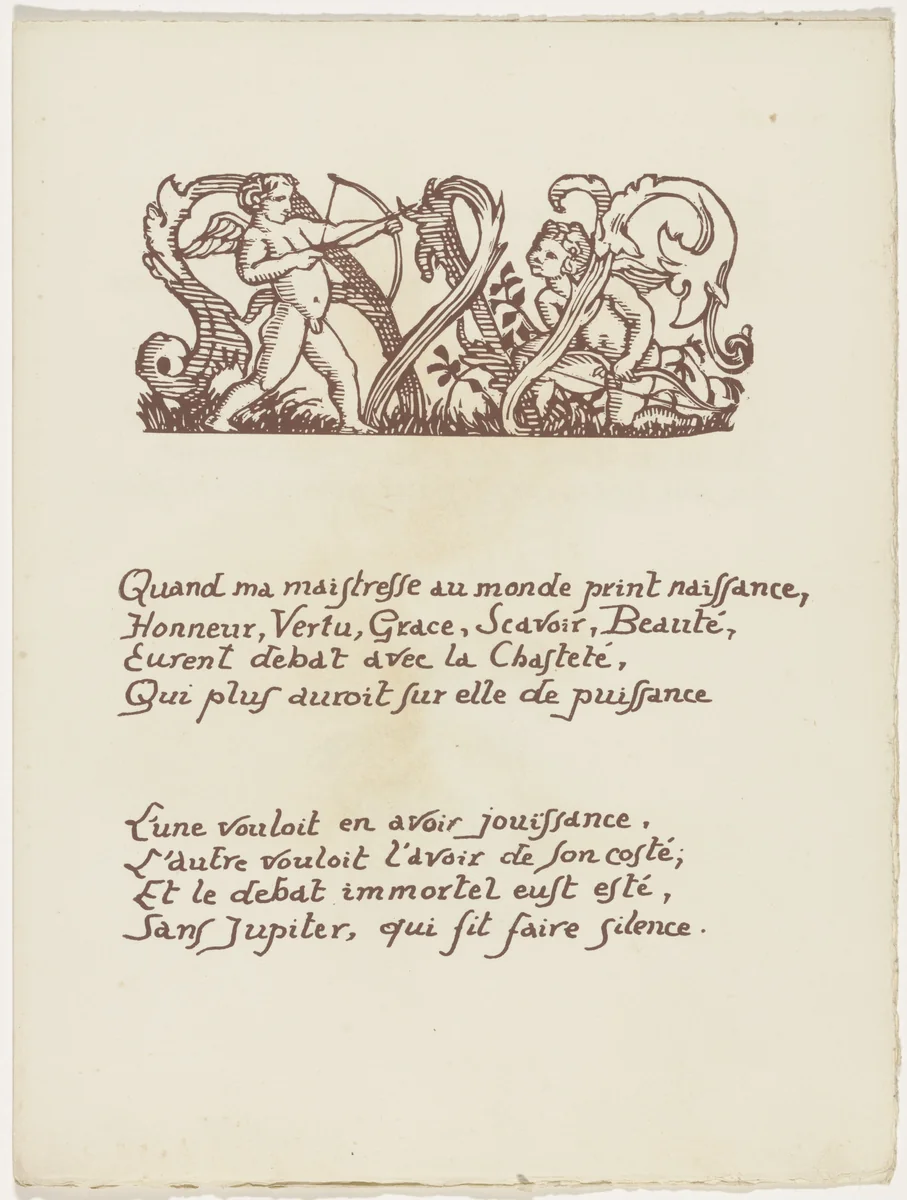 Quand ma maiſtreſſe au monde print naiſſance,
Honneur, Vertu, Grace, Scavoir, Beauté,
Eurent debat avec la Chaſteté,
Qui plus auroit ſur elle de puiſſance
L'une vouloit en avoir jouiſſance,
L'autre vouloit l'avoir de ſon coſté;
Et le debat immortel euſt eſté,
Sans Jupiter, qui fit faire ſilence.